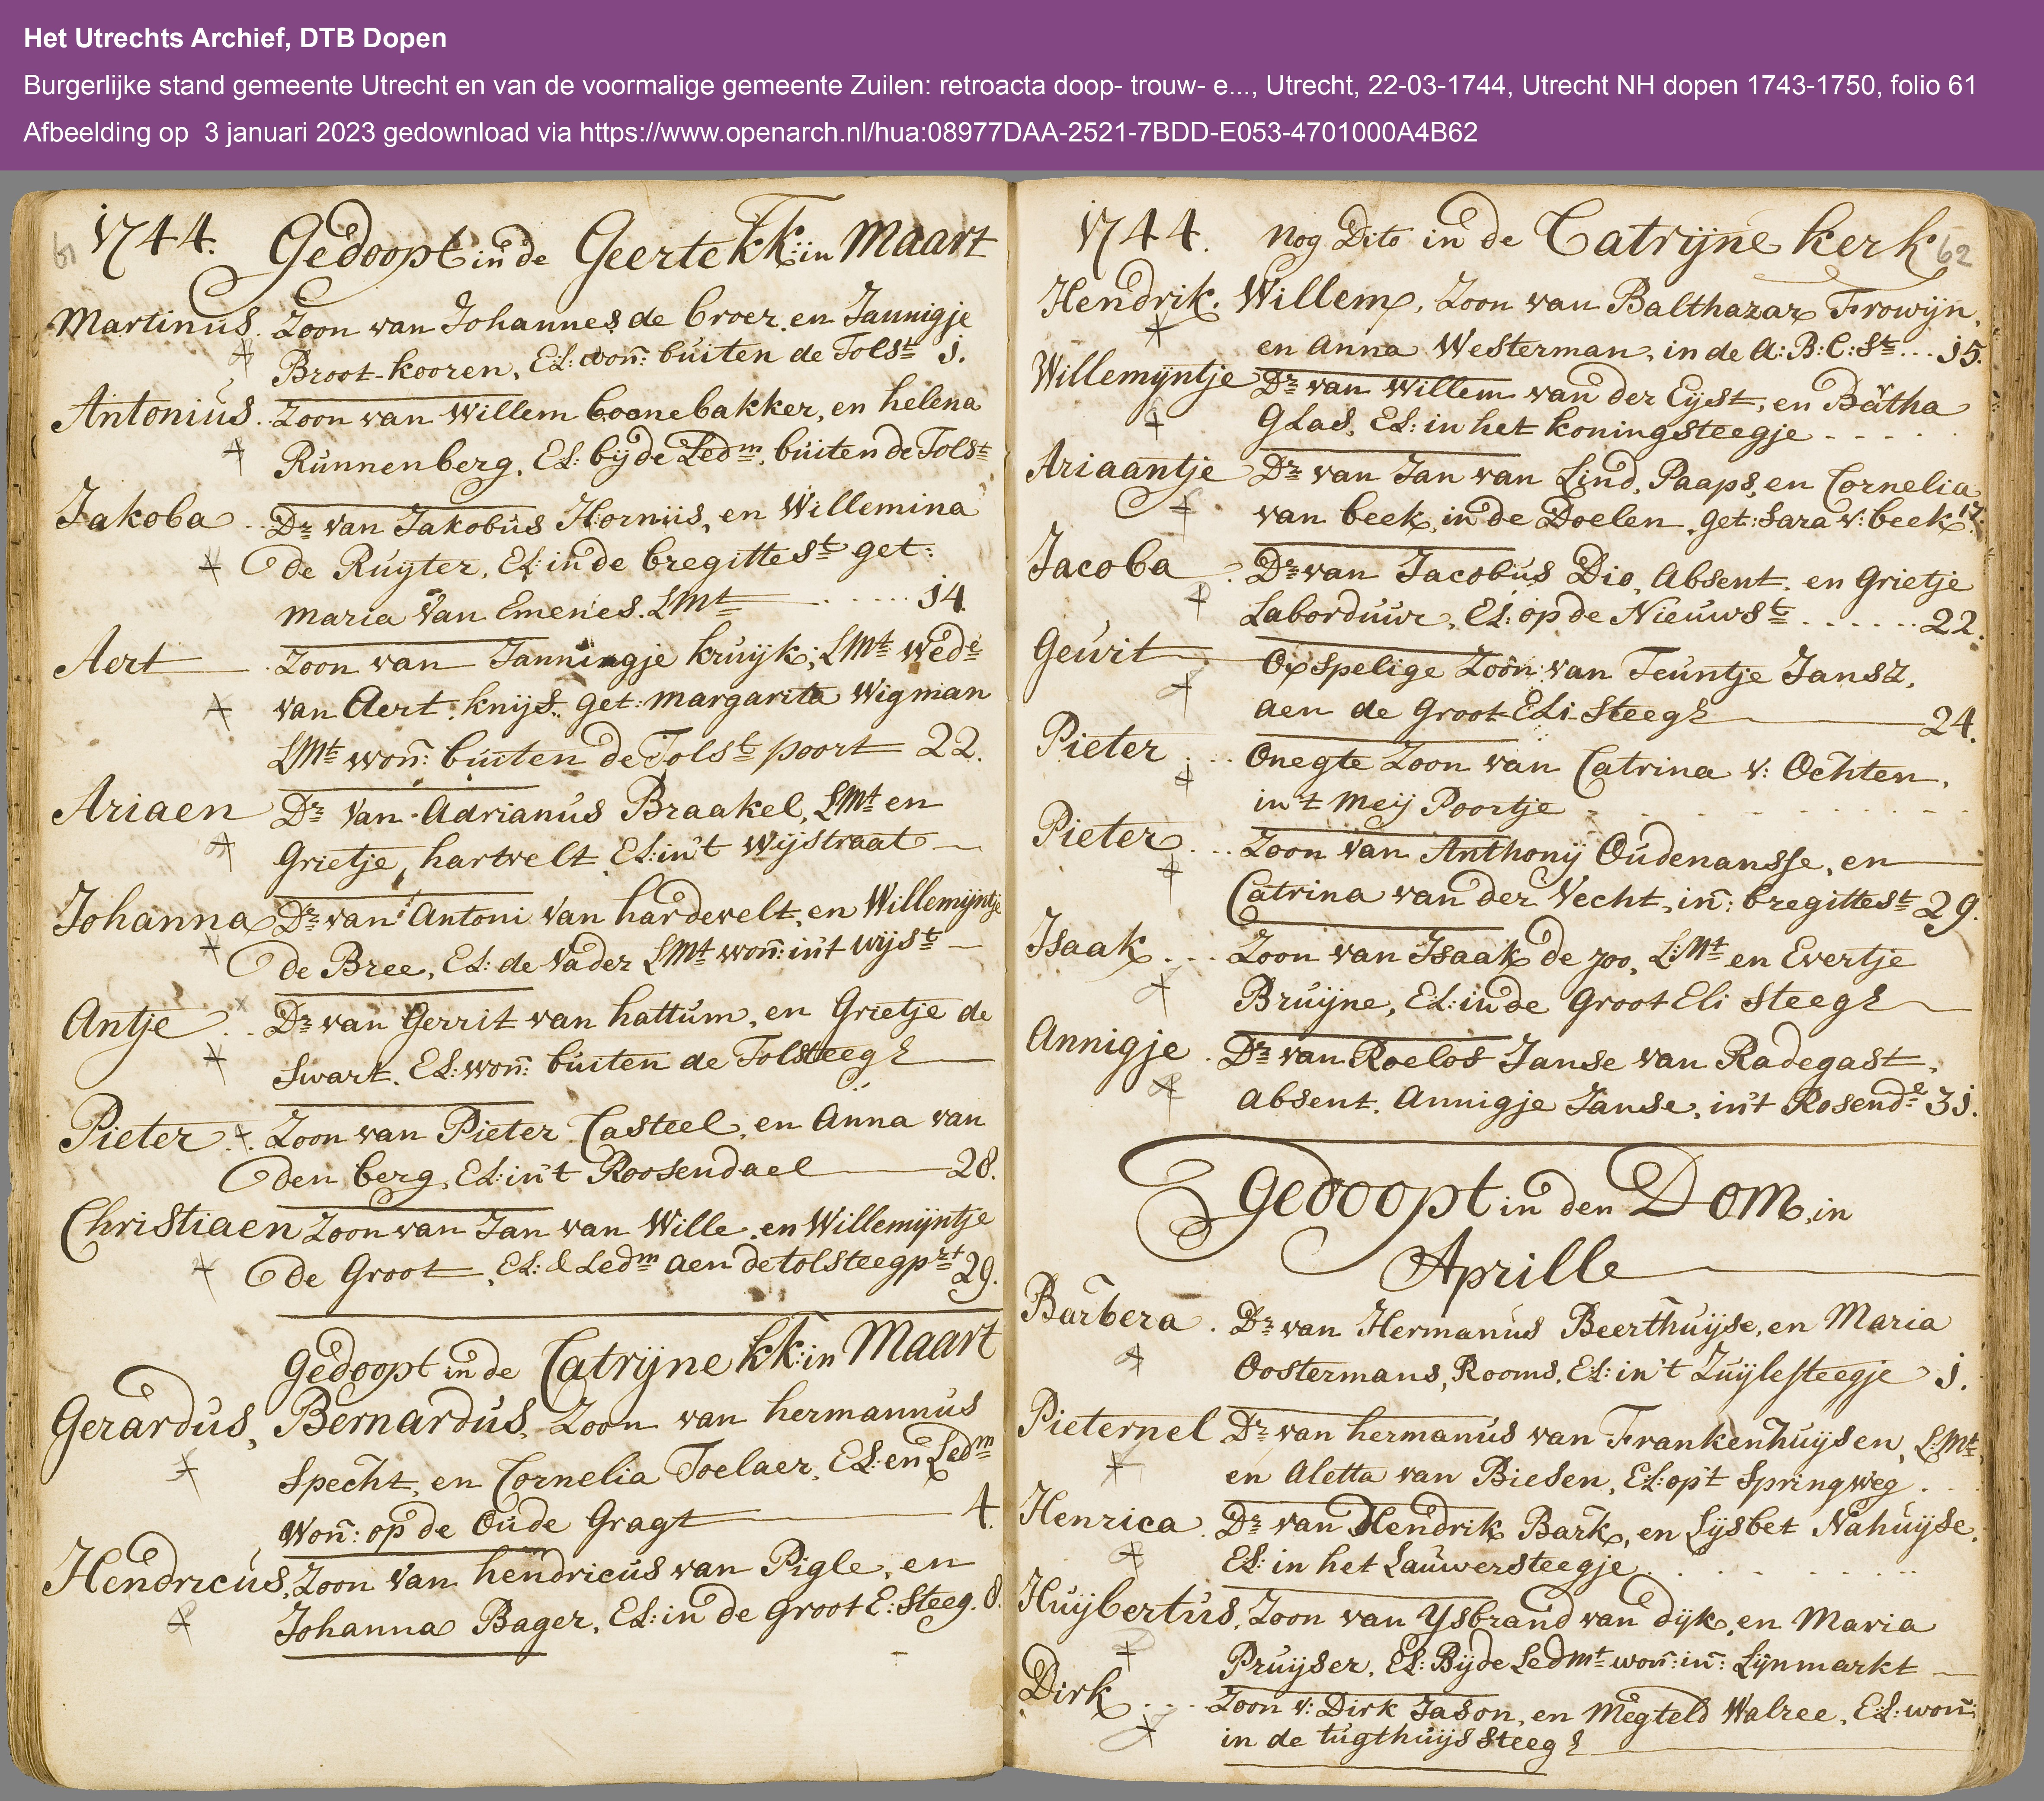 Het Utrechts Archief, DTB Dopen
Burgerlijke stand gemeente Utrecht en van de voormalige gemeente Zuilen: retroacta doop- trouw- e..., Utrecht, 22-03-1744, Utrecht NH dopen 1743-1750, folio 61
Afbeelding op 3 januari 2023 gedownload via https://www.openarch.nl/hua:08977DAA-2521-7BDD-E053-4701000A4B62
61 1744. Gedoopt in de Geerte kk: in Maart
Martinus. Zoon van Johannes de broer. en Jannigje
Broot-kooren, El: won: buiten de Tolst 1.
Antonius. Zoon van Willem boonebakker, en helena
Runnenberg, El: byde Ledm, buiten de Tolst
Jakoba Dr van Jakobus Hornus, en Willemina
de Ruyter, El: in de bregittest get:
Maria Van Emenes. LMt 14.
Aert Zoon van Janningje kruyk; LMt wede
van Aert. knijs. get: margarita Wigman
LMt won: buiten de Tolst poort 22.
Ariaen Dr Van Adrianus Braakel, LMt en
Grietje, hartvelt El: in't Wijstraat
Johanna Dr van Antoni Van hardevelt, en Willemyntje
de Bree, El: de Vader LMt won: in't wijst
Antje Dr van Gerrit van hattum, en Grietje de
Swart. El: won: buiten de Tolsteeg
Pieter Zoon van Pieter Casteel, en Anna van
den berg, El: in't Roosendael 28.
Christiaen Zoon van Jan van Wille, en Willemijntje
de Groot, El: & Ledm aen de tolsteegprt 29.
gedoopt in de Catrijne kk: in Maart
Gerardus, Bernardus, Zoon van hermannus
Specht, en Cornelia Toelaer, El: en Ledm
won: op de Oude Gragt 4.
Hendricus, Zoon Van hendricus van Pigle, en
Johanna Bager, El: in de Groot E: Steeg. 8.
1744. Nog Dito in de Catrijne kerk 62
Hendrik. Willem, Zoon van Balthazar Frowijn,
en Anna Westerman, in de A: B: C: St... 15.
Willemyntje Dr van Willem van der Eyst, en Batha
Glas, El: in het koningsteegje
Ariaantje Dr van Jan van Lind, Paaps, en Cornelia
van beek, in de Doelen, get: Sara v: beek 17.
Jacoba Dr van Jacobus Dio, Absent. en Grietje
Laborduur, El: op de Nieuwst 22.
Geurit Oxspelige Zoon: van Teuntje Jansz,
aen de Groot Eli-Steeg 24.
Pieter Onegte Zoon van Catrina v: Ochten,
in't Meij Poortje
Pieter Zoon Van Anthonij Oudenansse, en
Catrina van der Vecht, in: bregittest 29.
Isaak Zoon van Isaak de joo, L:Mt en Evertje
Bruijne, El: in de Groot Eli Steeg
Annigje Dr van Roelos Janse van Radegast,
Absent. Annigje Janse, in't Rosende 31.
gedoopt in den Dom, in
Aprille
Barbera Dr van Hermanus Beerthuijse, en Maria
Oostermans, Rooms, El: in't Zuijlesteegje 1.
Pieternel Dr van hermanus van Frankenhuijsen, L:Mt
en Aletta van Biesen, El: op't Springweg
Henrica Dr van Hendrik Bark, en Lysbet Nahuijse.
El: in het Lauwersteegje
Huijbertus, Zoon van Ysbrand van dijk, en Maria
Pruijser, El: Bijde Ledmt won: in: Lijnmarkt
Dirk Zoon v: Dirk Jason, en Megteld Walree, El: won:
in de tugthuijs Steeg